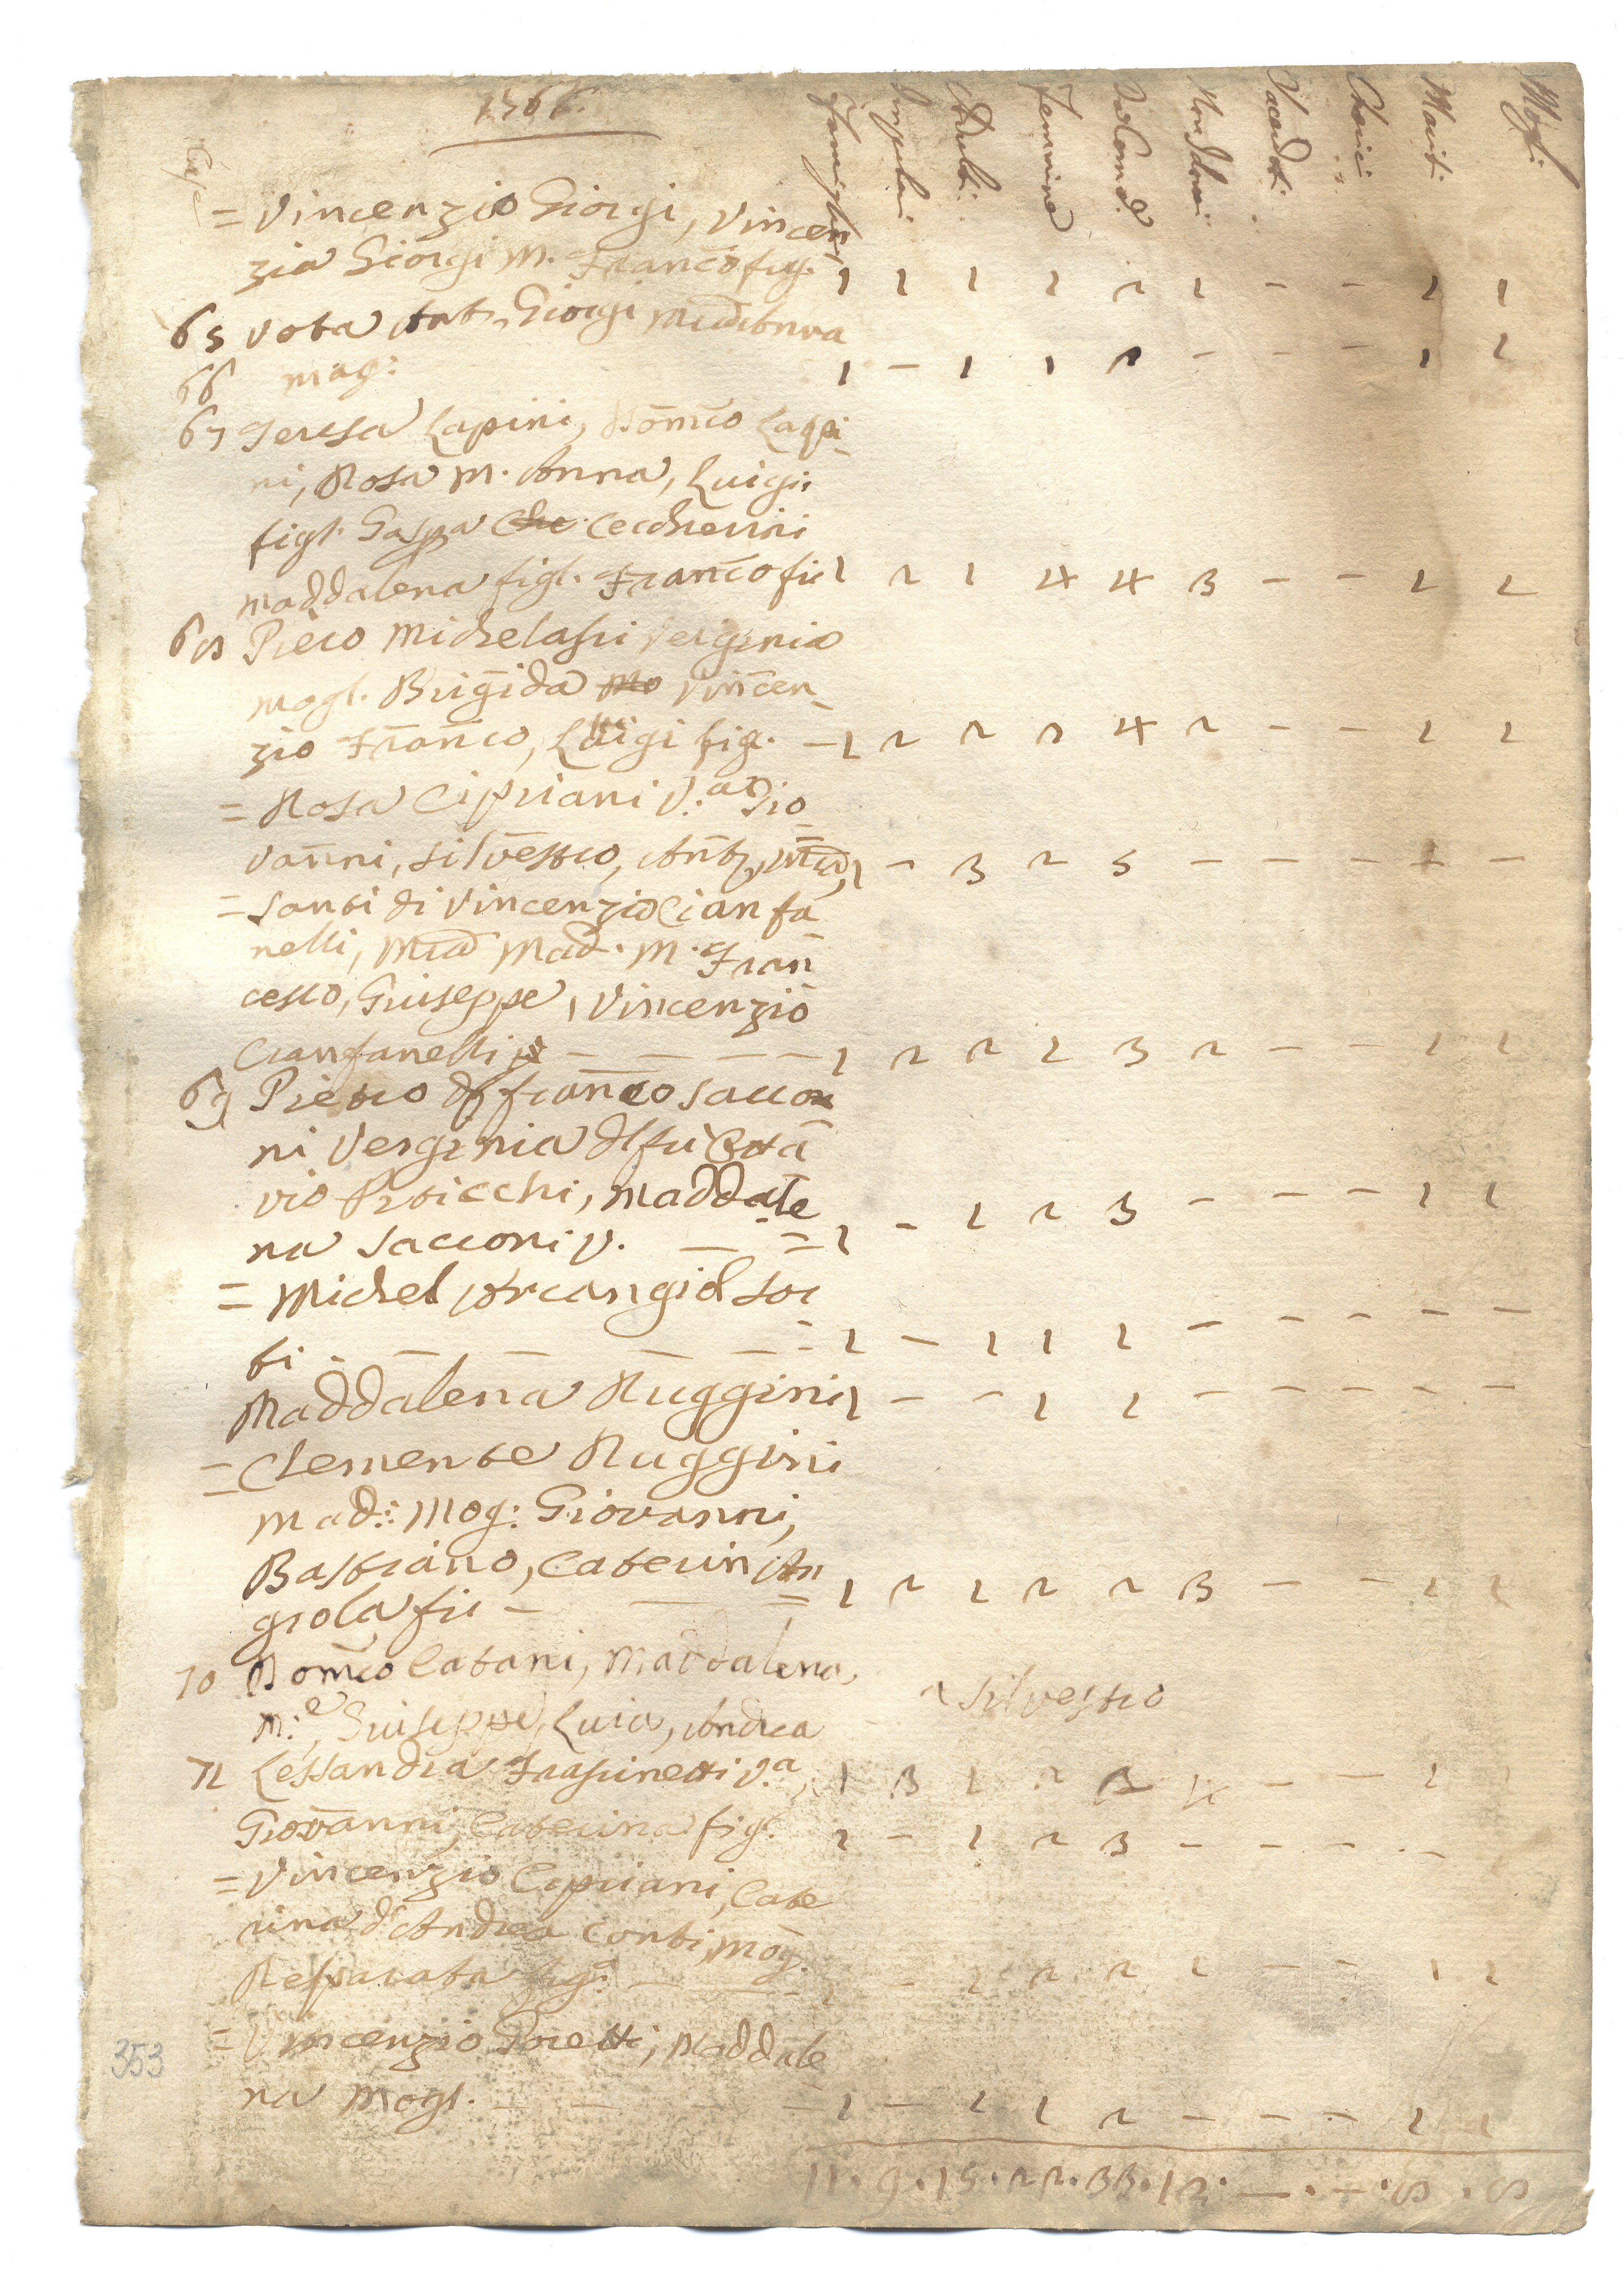 1766.
Case Famiglie Impuberi Adulti Femmine Da Com.e Non da Com. Sacerdoti Cherici Mariti Mogli
= Vincenzio Giorgi, Vincen
zia Giorgi M. Franco fig. 1 1 1 1 2 1 - - 1 1
65 vota Ant. Giorgi
66 mag: 1 - 1 1 2 - - - 1 1
67 Teresa Lapini, Domco Lapi
ni, Rosa M. Anna, Luigi
figl. Gaspa CheCeccherini
maddalena figl. Franco fi 1 2 1 4 4 3 - - 1 1
68 Piero Michelassi Verginia
mogl. Brigida Mo Vincen
zio Franco, Luigi fig. - 1 2 2 2 4 2 - - 1 1
= Rosa Cipriani V.a Gio
vanni, Silvestro, Ant., 1 - 3 2 5 - - - - -
= Santi di Vincenzio Cianfa
nelli, Mia Mad. M. Fran
cesco, Giuseppe, Vincenzio
Cianfanelli - - - - 1 2 2 1 3 2 - - 1 1
69 Pietro di Franco Sacco
ni Verginia del fu Otta
vio Pisticchi, Maddale
na Sacconi V. - = 1 - 1 2 3 - - - 1 1
= Michel Arcangiol Sor
bi - - - - - 1 - 1 1 1 - - - - -
Maddalena Ruggini 1 - - 1 1 - - - - -
= Clemente Ruggini
Mad: Mog: Giovanni,
Bastiano, Caterin An
giola fi - - = 1 2 1 2 2 3 - - 1 1
70 Domco Catani, Maddalena,
M.e, Giuseppe, Luia, Andrea ^ Silvestro
71 Lessandra Frassinetti V.a, 1 3 1 2 3 4 - - 1 1
Giovanni, Caterina figl. 1 - 1 2 3 - - - -
= Vincenzio Cipriani, Cate
rina d'Andrea Conti, Mog.
Reparata fig.a - - 1 - 1 2 2 1 - - 1 1
= Vincenzio Poretti, Maddale
na Mogl. - - - - 1 - 1 1 2 - - - 1 1
11. 9. 15. 22. 33. 12. - . - . 8 . 8
353